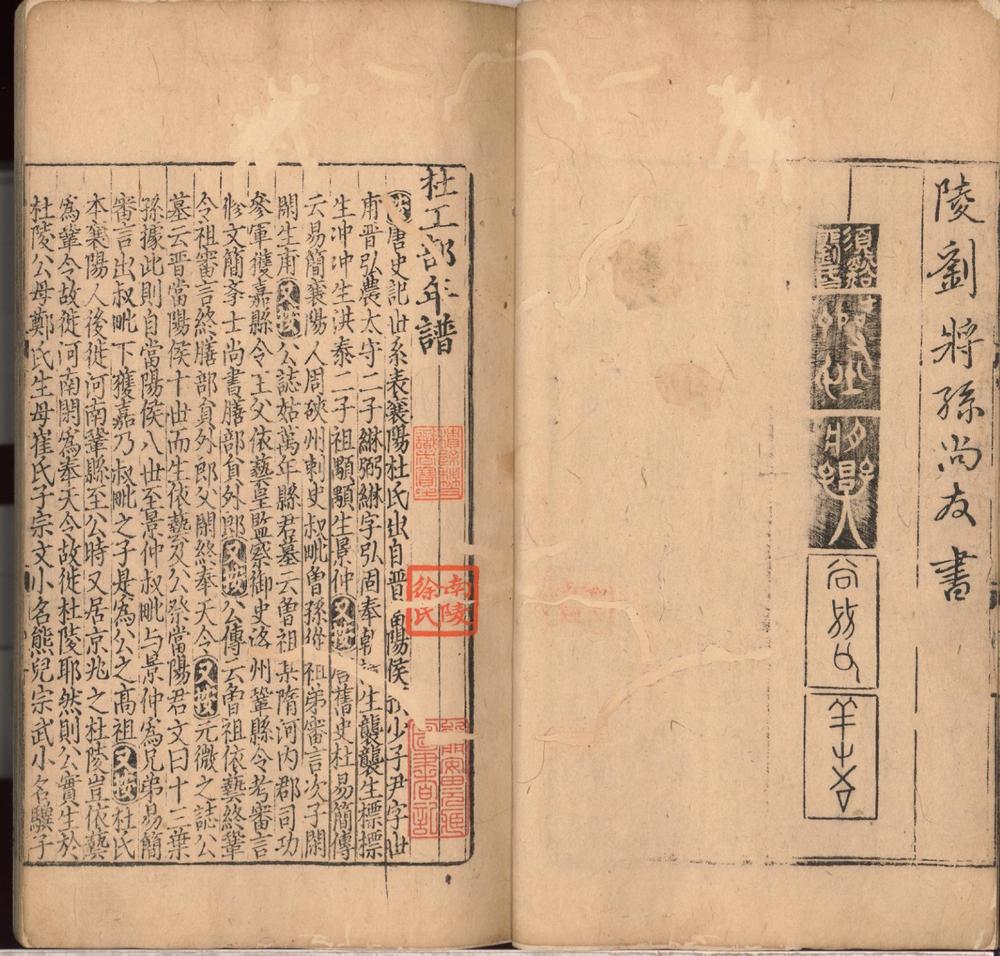 陵劉將孫尚友書
須谿
將孫
杜工部年譜
唐史記世系表襄陽杜氏出自晉當陽侯少子尹字世
甫晉弘農太守二子綝弼綝字弘固奉朝生襲襲生標標
生冲冲生洪泰二子祖顒顒生景仲又按舊史杜易簡傳
云易簡襄陽人周硤州刺史叔毗曾孫祖弟審言次子閑
閑生甫又按公誌姑萬年縣君墓云曾祖某隋河內郡司功
參軍獲嘉縣令王父依藝皇監察御史洛州鞏縣令考審言
修文簡斈士尚書膳部負外郎又按公傳云曾祖依藝終鞏
令祖審言終膳部負外郎父閑終奉天令又按元微之誌公
墓云晉當陽侯十世而生依藝又公祭當陽君文曰十三葉
孫據此則自當陽侯八世至景仲叔毗与景仲為兄弟易簡
審言出叔毗下獲嘉乃叔毗之子是為公之高祖又按杜氏
本襄陽人後徙河南鞏縣至公時又居京兆之杜陵豈依藝
為鞏令故徙河南閑為奉天令故徙杜陵耶然則公實生於
杜陵公母鄭氏生母崔氏子宗文小名熊兒宗武小名驥子
南陵
徐氏